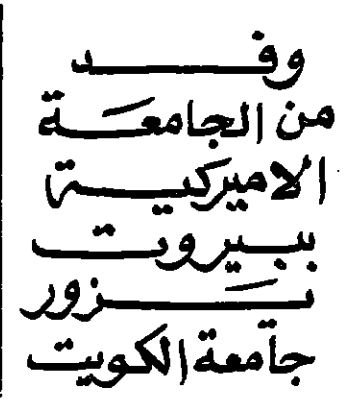 وفد
من الجامعة
الاميركية
ببيروت
يزور
جامعة الكويت